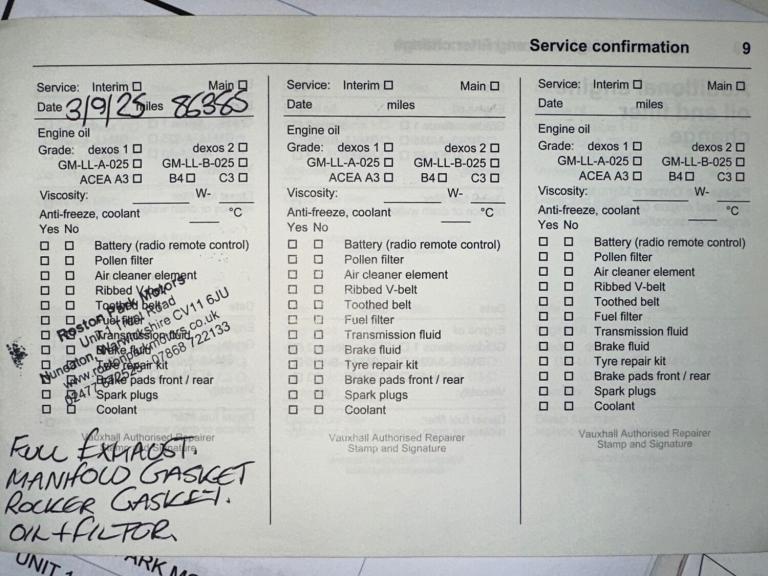 Service confirmation 9
Service: Interim ☐ Main ☐
Date 3/9/25 miles 86385
Engine oil
Grade: dexos 1 ☐ dexos 2 ☐
GM-LL-A-025 ☐ GM-LL-B-025 ☐
ACEA A3 ☐ B4 ☐ C3 ☐
Viscosity: W-
Anti-freeze, coolant °C
Yes No
☐ ☐ Battery (radio remote control)
☐ ☐ Pollen filter
☐ ☐ Air cleaner element
☐ ☐ Ribbed V-belt
☐ ☐ Toothed belt
☐ ☐ Fuel filter
☐ ☐ Transmission fluid
☐ ☐ Brake fluid
☐ ☐ Tyre repair kit
☐ ☐ Brake pads front / rear
☐ ☐ Spark plugs
☐ ☐ Coolant
Vauxhall Authorised Repairer
Stamp and Signature
Park Motors
Unit 1 Road
Nuneaton, Warwickshire CV11 6JU
07868 722133
FULL EXHAUST.
MANIFOLD GASKET
ROCKER GASKET.
OIL + FILTOR.
Service: Interim ☐ Main ☐
Date miles
Engine oil
Grade: dexos 1 ☐ dexos 2 ☐
GM-LL-A-025 ☐ GM-LL-B-025 ☐
ACEA A3 ☐ B4 ☐ C3 ☐
Viscosity: W-
Anti-freeze, coolant °C
Yes No
☐ ☐ Battery (radio remote control)
☐ ☐ Pollen filter
☐ ☐ Air cleaner element
☐ ☐ Ribbed V-belt
☐ ☐ Toothed belt
☐ ☐ Fuel filter
☐ ☐ Transmission fluid
☐ ☐ Brake fluid
☐ ☐ Tyre repair kit
☐ ☐ Brake pads front / rear
☐ ☐ Spark plugs
☐ ☐ Coolant
Vauxhall Authorised Repairer
Stamp and Signature
Service: Interim ☐ Main ☐
Date miles
Engine oil
Grade: dexos 1 ☐ dexos 2 ☐
GM-LL-A-025 ☐ GM-LL-B-025 ☐
ACEA A3 ☐ B4 ☐ C3 ☐
Viscosity: W-
Anti-freeze, coolant °C
Yes No
☐ ☐ Battery (radio remote control)
☐ ☐ Pollen filter
☐ ☐ Air cleaner element
☐ ☐ Ribbed V-belt
☐ ☐ Toothed belt
☐ ☐ Fuel filter
☐ ☐ Transmission fluid
☐ ☐ Brake fluid
☐ ☐ Tyre repair kit
☐ ☐ Brake pads front / rear
☐ ☐ Spark plugs
☐ ☐ Coolant
Vauxhall Authorised Repairer
Stamp and Signature
UNIT